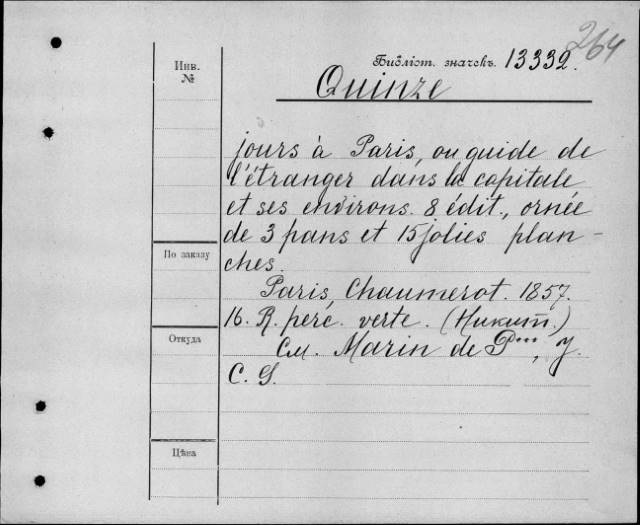 264
Библіот. значекъ 13332.
Инв.
№
Quinze
jours à Paris, ou guide de
l'étranger dans la capitale
et ses environs. 8 édit., ornée
de 3 pans et 15 jolies plan-
ches.
По заказу
Paris, Chaumerot. 1857.
16. R. perc. verte. (Никит.)
Откуда
См. Marin de P***, J.
C. G.
Цѣна